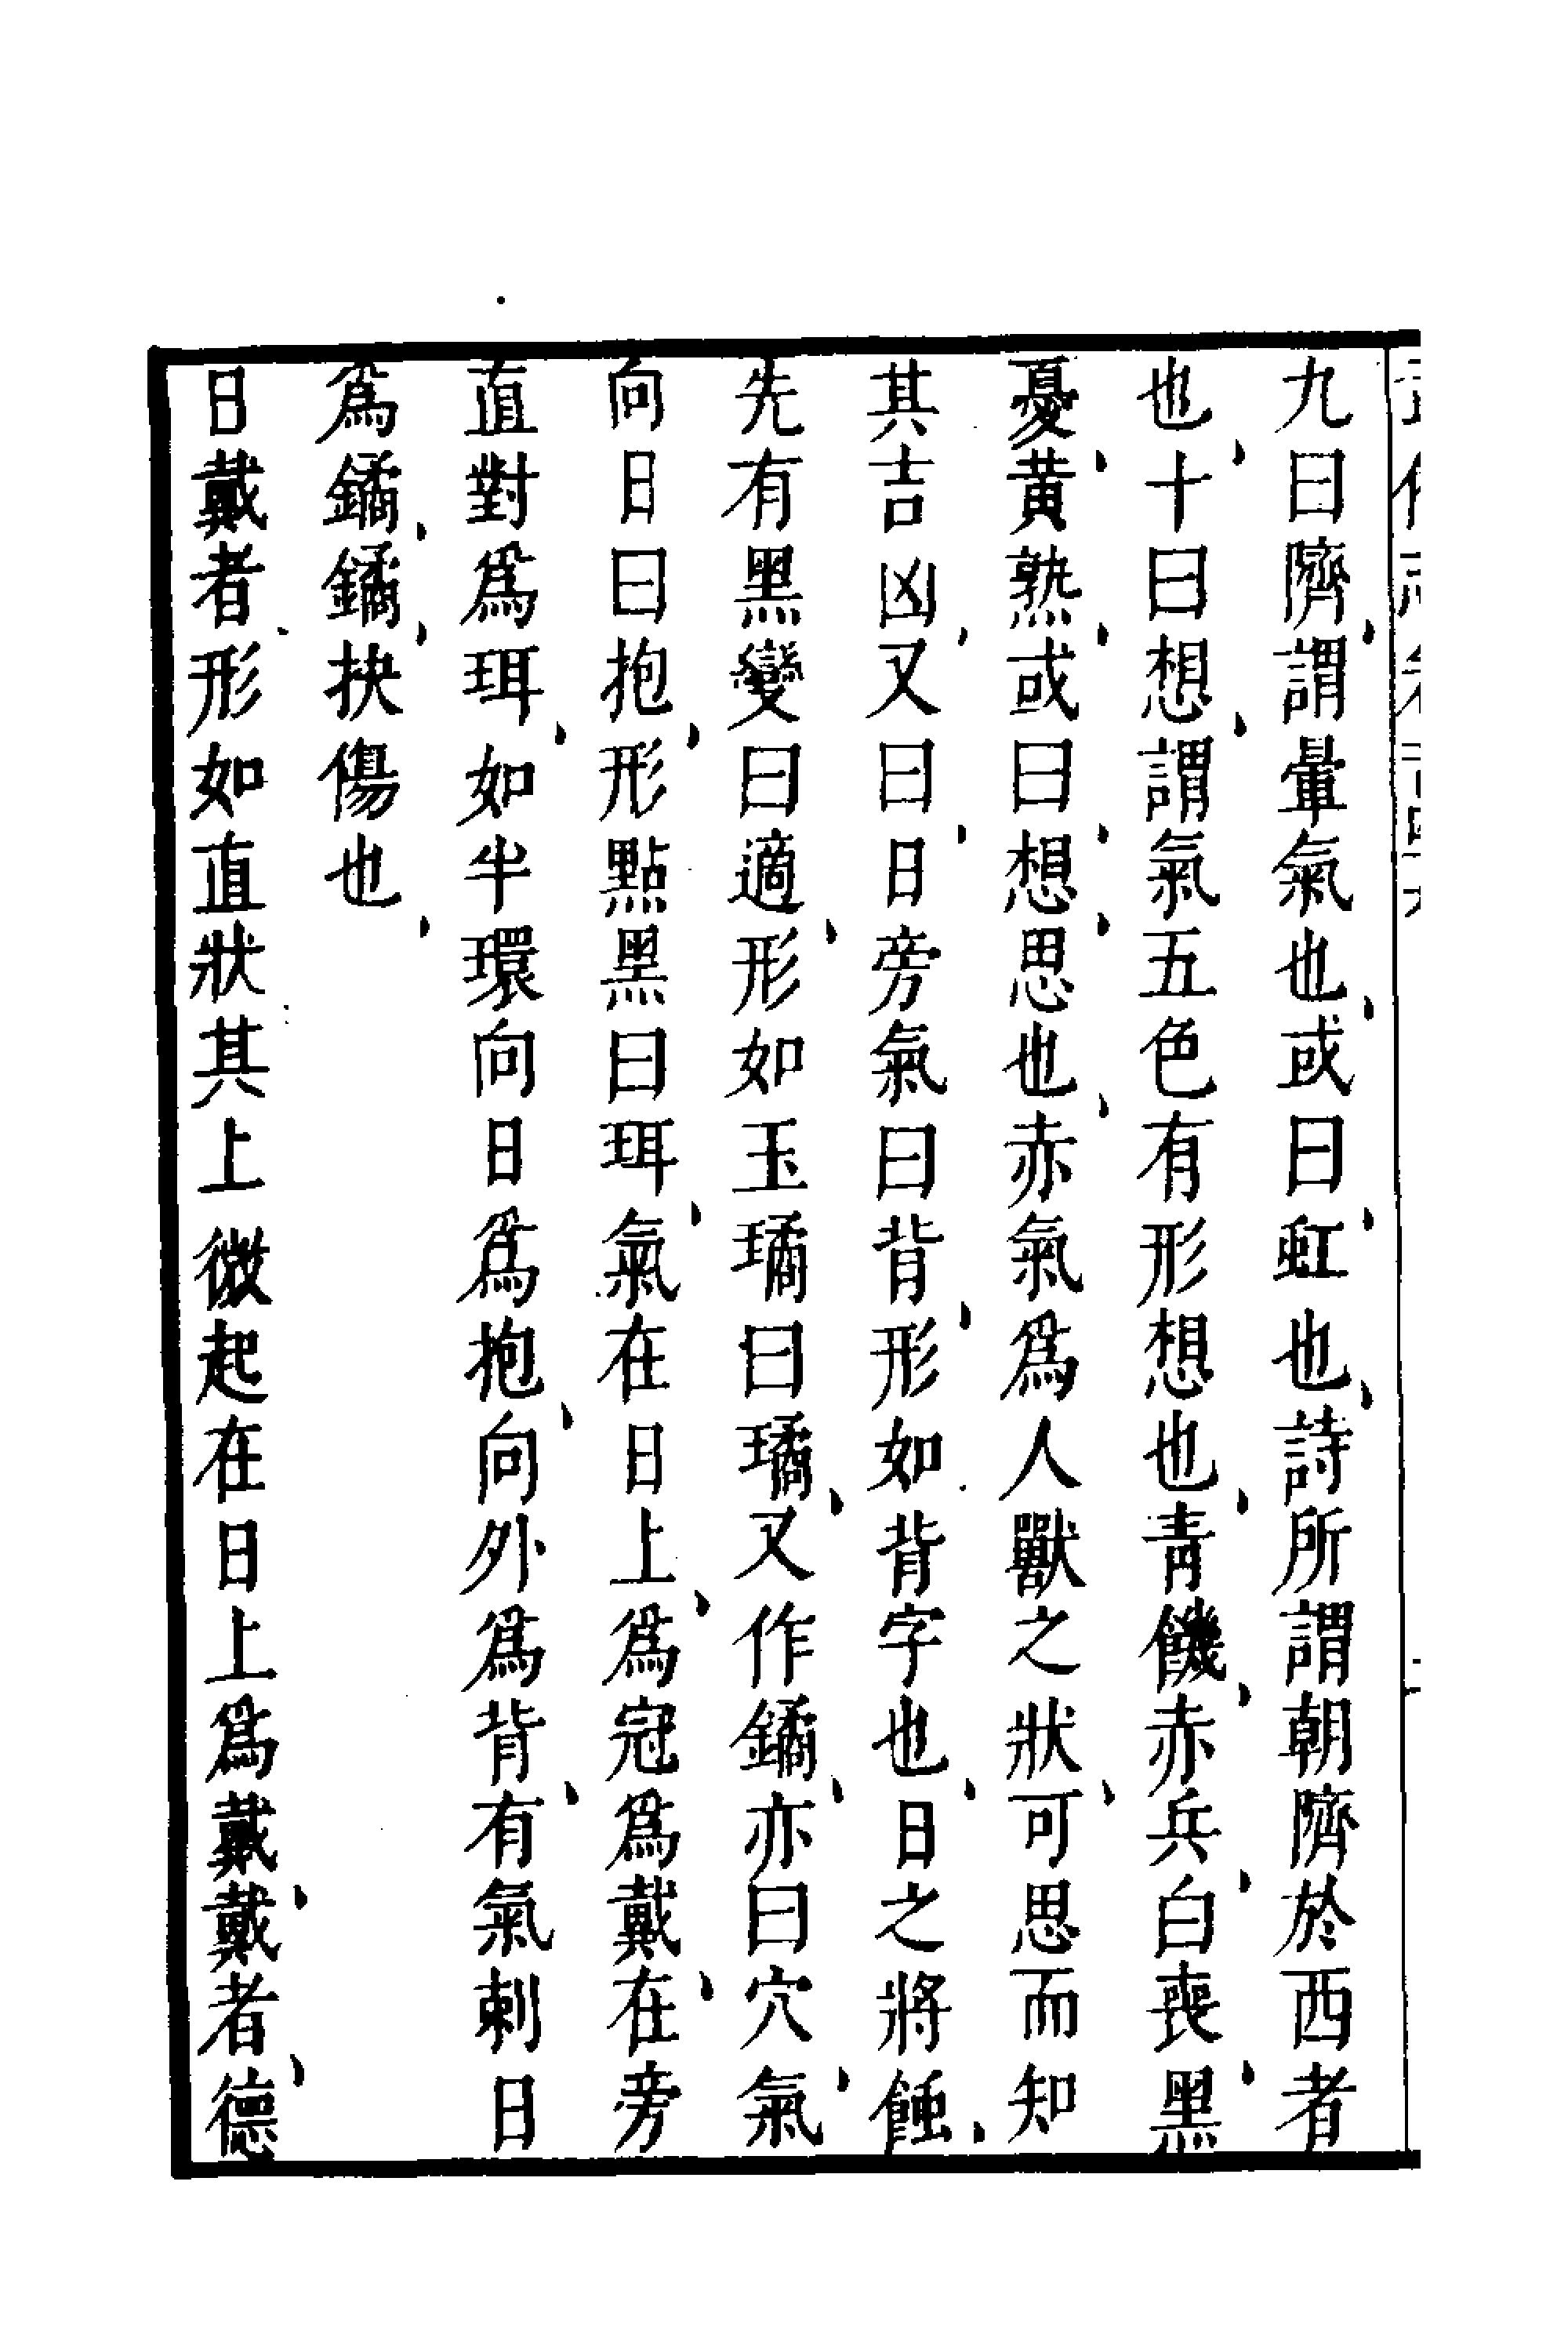 九曰隮謂暈氣也或曰虹也詩所謂朝隮於西者
也十曰想謂氣五色有形想也青饑赤兵白喪黑
憂黃熟或曰想思也赤氣爲人獸之狀可思而知
其吉凶又曰日旁氣曰背形如背字也日之將蝕
先有黑變曰適形如玉璚曰璚又作鐍亦曰穴氣
向日曰抱形點黑曰珥氣在日上爲冠爲戴在旁
直對爲珥如半環向日爲抱向外爲背有氣刺日
爲鐍鐍抉傷也
日戴者形如直狀其上微起在日上爲戴戴者德